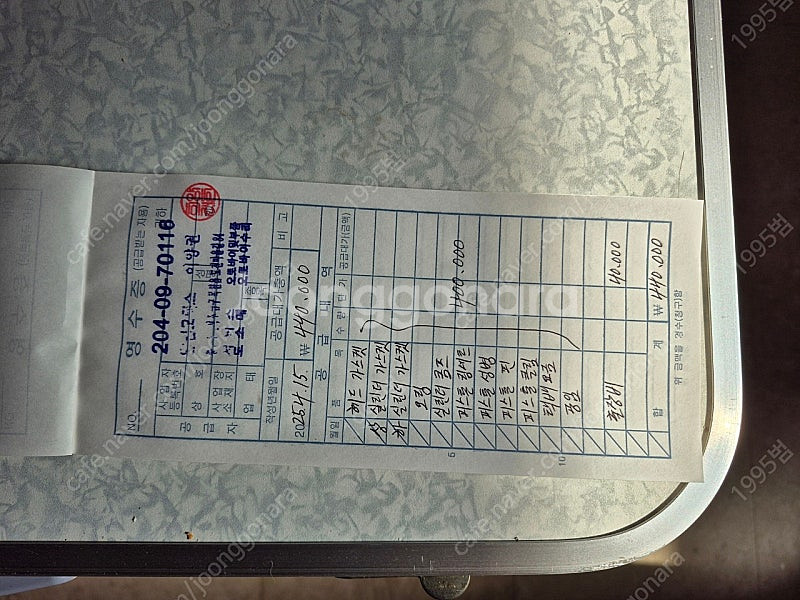 NO.
영 수 증 (공급받는 자용)
귀하
사업자등록번호 204-09-70116
상 호
성명 이양권
사업장소재지
업 태
종목
오토바이수리
작성년월일 공급대가총액 비 고
2025.4.15. ₩ 440.000
공 급 내 역
월일 품 목 수량 단가 공급대가(금액)
헤드 가스켓
상 실린더 가스켓
하 실린더 가스켓
오링
실린더 롱즈
피스톤
피스톤 핀
피스톤 클립
400.000
출장비 40.000
합 계 ₩ 440.000
위 금액을 영수(청구)함
5
10
joonggonara
cafe.naver.com/joonggonara
1995범